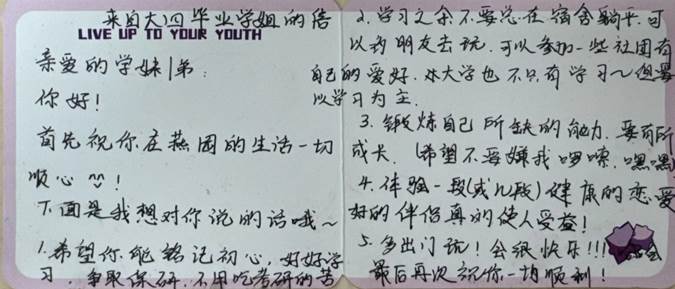 来自大四毕业学姐的信
LIVE UP TO YOUR YOUTH
亲爱的学妹/弟:
你好!
首先祝你在燕园的生活一切
顺心 ^_^!
下面是我想对你说的话哦~
1.希望你能铭记初心,好好学
习,争取保研,不用吃考研的苦
2.学习之余不要总在宿舍躺平.可
以约朋友去玩.可以参加一些社团有
自己的爱好.大学也不只有学习~但要
以学习为主.
3.锻炼自己所缺的能力.要有所
成长.(希望不要嫌我啰嗦.嘿嘿)
4.体验一段(或几段)健康的恋爱
好的伴侣真的使人受益!
5.多出门玩!会很快乐!!!
最后再次祝你一切顺利!